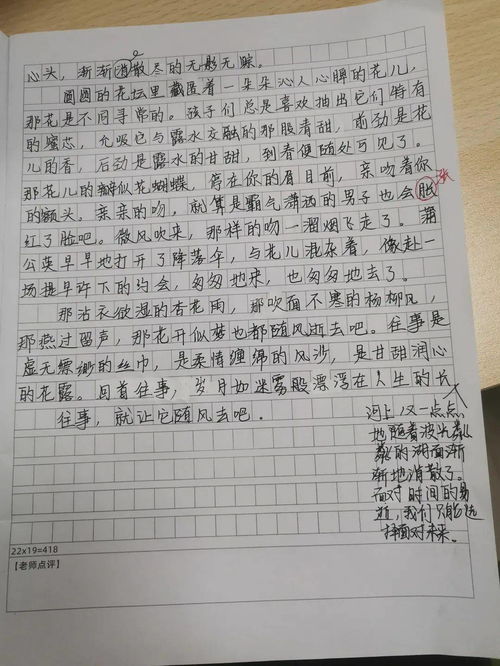 心头，渐渐消散尽的无影无踪。
圆圆的花坛里藏匿着一朵朵沁人心脾的花儿，
那花是不同寻常的。孩子们总是喜欢抽出它们特有
的蜜芯，允吸它与露水交融的那股香甜，前劲是花
儿的香，后劲是露水的甘甜，到春便随处可见了。
那花儿的瓣似花蝴蝶，停在你的眉目前，亲吻着你
的额头。亲亲的吻，就算是霸气潇洒的男子也会脸
涨
红了脸吧。微风吹来，那样的吻一溜烟飞走了。蒲
公英早早地打开了降落伞，与花儿混杂着，像赴一
场提早许下的约会，匆匆地来，也匆匆地去了。
那沾衣欲湿的杏花雨，那吹面不寒的杨柳风，
那燕过留声，那花开似梦也都随风逝去吧。往事是
虚无缥缈的丝巾，是柔情缠绵的风沙，是甘甜润心
的花露。回首往事，岁月如迷雾般漂浮在人生的长
往事，就让它随风去吧。
河上又一点点
地随着波光粼
粼的湖面渐
渐地消散了。
面对时间的易
逝，我们只能选
择面对未来。
22x19=418
【老师点评】